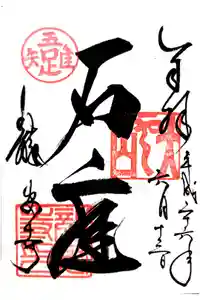 奉拝
平成二六年
六月十三日
石庭
龍安寺
吾唯足知